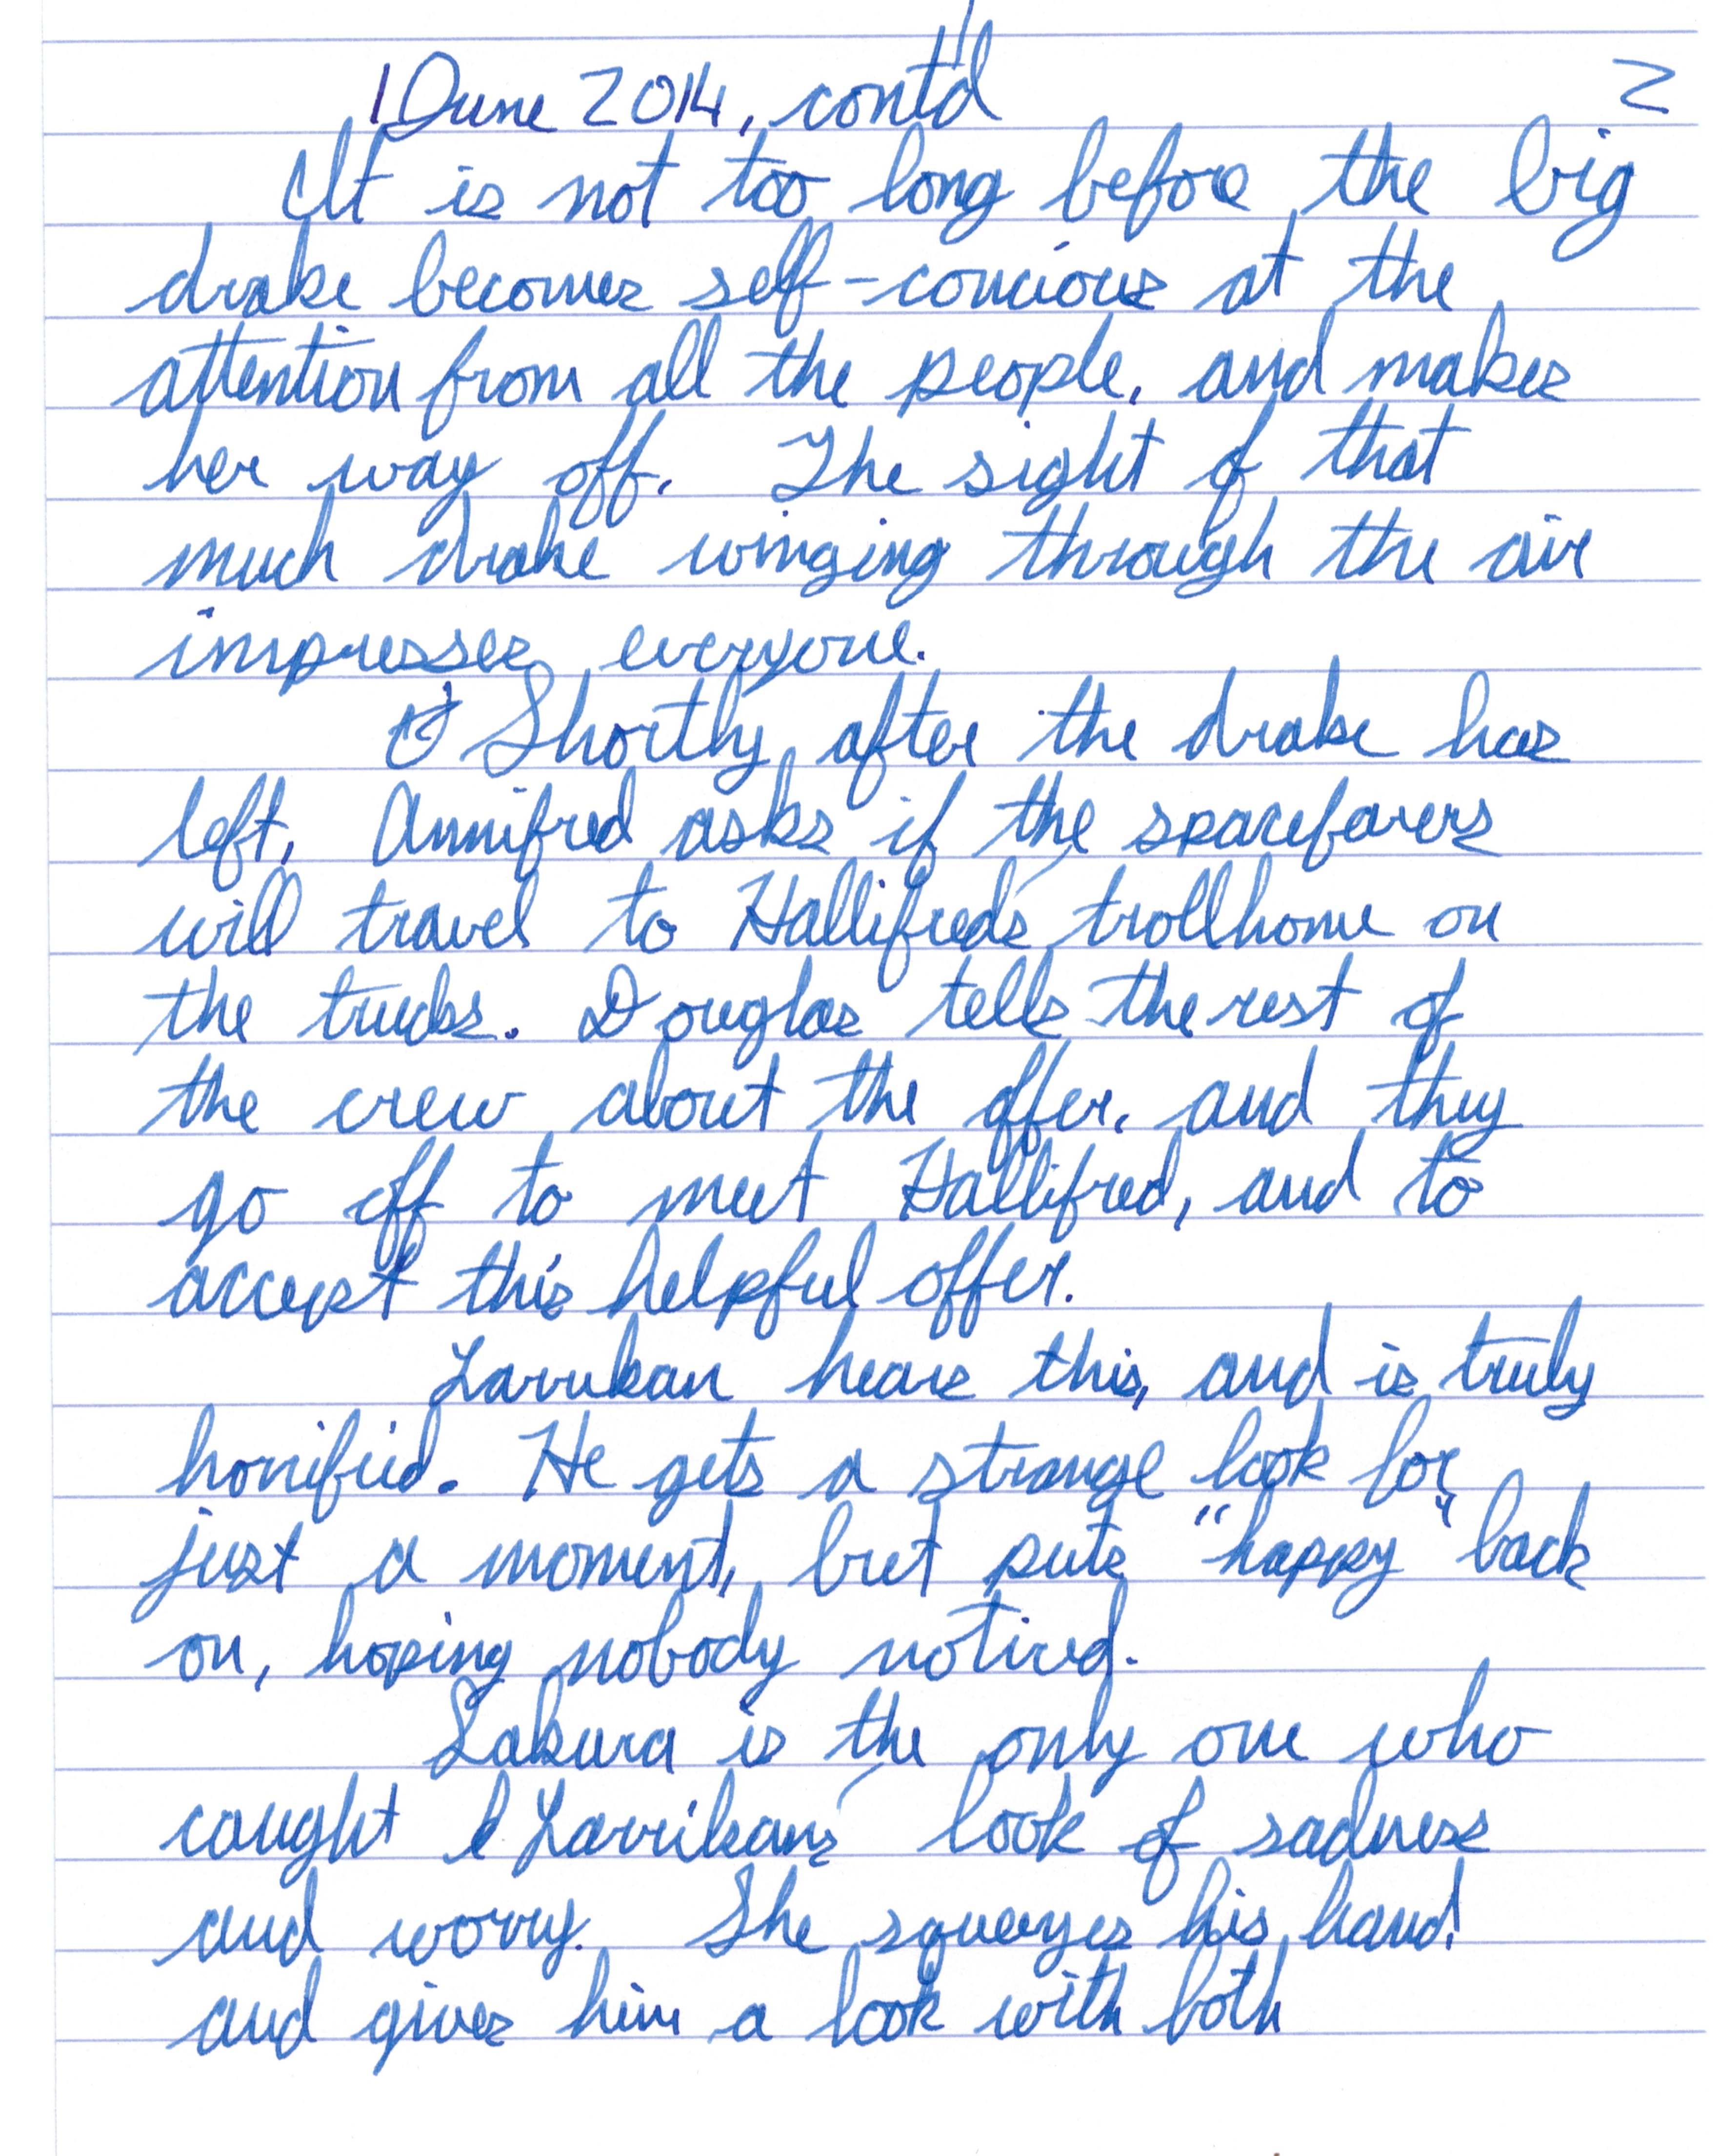 1 June 2014, cont'd 2
It is not too long before the big
drake becomes self-concious at the
attention from all the people, and makes
her way off. The sight of that
much drake winging through the air
impresses everyone.
Shortly after the drake has
left, Annifred asks if the spacefarers
will travel to Hallifred's trollhome on
the trucks. Douglas tells the rest of
the crew about the offer, and they
go off to meet Hallifred, and to
accept this helpful offer.
Larrikan hears this, and is truly
horrified. He gets a strange look for
just a moment, but puts "happy" back
on, hoping nobody noticed.
Sakura is the only one who
caught Larrikan's look of sadness
and worry. She squeezes his hand
and gives him a look with both